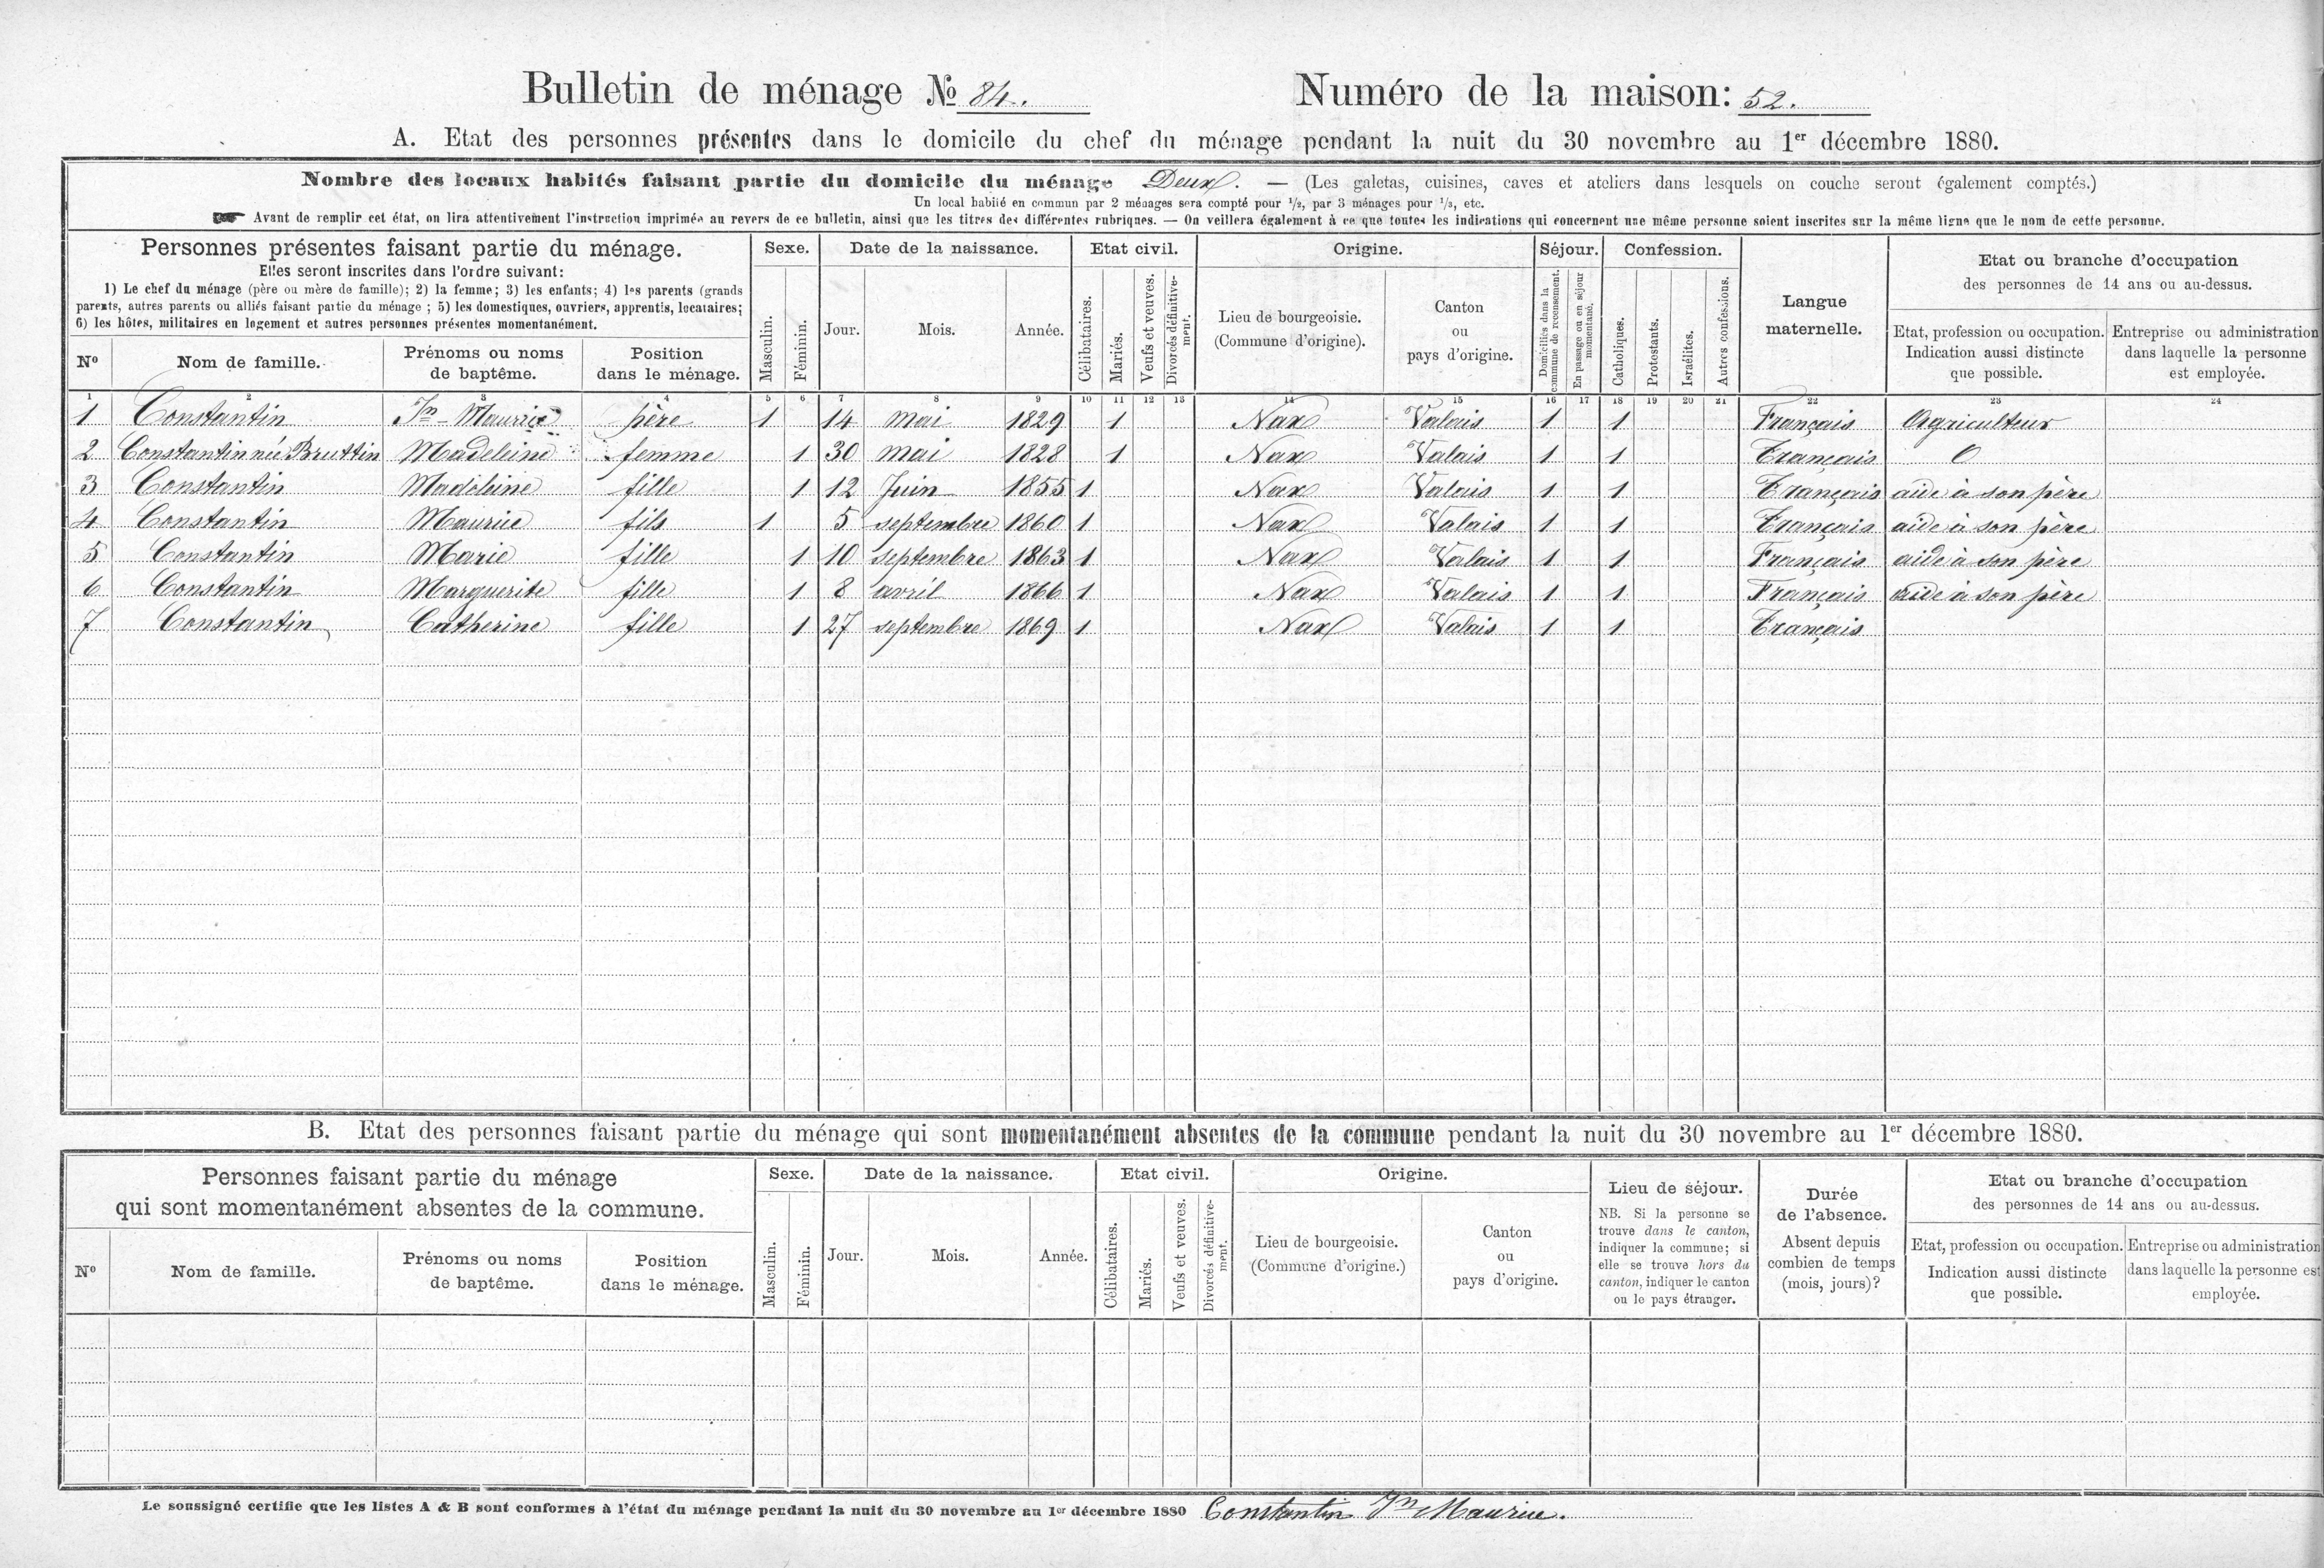 Bulletin de ménage № 84. Numéro de la maison: 52.
A. Etat des personnes présentes dans le domicile du chef du ménage pendant la nuit du 30 novembre au 1er décembre 1880.
Nombre des locaux habités faisant partie du domicile du ménage Deux. — (Les galetas, cuisines, caves et ateliers dans lesquels on couche seront également comptés.)
Un local habité en commun par 2 ménages sera compté pour 1/2, par 3 ménages pour 1/3, etc.
Avant de remplir cet état, on lira attentivement l'instruction imprimée au revers de ce bulletin, ainsi que les titres des différentes rubriques. — On veillera également à ce que toutes les indications qui concernent une même personne soient inscrites sur la même ligne que le nom de cette personne.
Personnes présentes faisant partie du ménage.
Elles seront inscrites dans l'ordre suivant:
1) Le chef du ménage (père ou mère de famille); 2) la femme; 3) les enfants; 4) les parents (grands
parents, autres parents ou alliés faisant partie du ménage; 5) les domestiques, ouvriers, apprentis, locataires;
6) les hôtes, militaires en logement et autres personnes présentes momentanément.
Nº
Nom de famille.
Prénoms ou noms
de baptême.
Position
dans le ménage.
Sexe.
Masculin.
Féminin.
Date de la naissance.
Jour.
Mois.
Année.
Etat civil.
Célibataires.
Mariés.
Veufs et veuves.
Divorcés définitive-
ment.
Origine.
Lieu de bourgeoisie.
(Commune d'origine).
Canton
ou
pays d'origine.
Séjour.
Domiciliés dans la
commune de recensement.
En passage ou en séjour
momentané.
Confession.
Catholiques.
Protestants.
Israélites.
Autres confessions.
Langue
maternelle.
Etat ou branche d'occupation
des personnes de 14 ans ou au-dessus.
Etat, profession ou occupation.
Indication aussi distincte
que possible.
Entreprise ou administration
dans laquelle la personne
est employée.
1 2 3 4 5 6 7 8 9 10 11 12 13 14 15 16 17 18 19 20 21 22 23 24
1 Constantin Jn-Maurice père 1 14 mai 1829 1 Nax Valais 1 1 Français Agriculteur
2 Constantin née Bruttin Madeleine femme 1 30 mai 1828 1 Nax Valais 1 1 Français 0
3 Constantin Madeleine fille 1 12 Juin 1855 1 Nax Valais 1 1 Français aide à son père
4 Constantin Maurice fils 1 5 septembre 1860 1 Nax Valais 1 1 Français aide à son père
5 Constantin Marie fille 1 10 septembre 1863 1 Nax Valais 1 1 Français aide à son père
6 Constantin Marguerite fille 1 8 avril 1866 1 Nax Valais 1 1 Français aide à son père
7 Constantin Catherine fille 1 27 septembre 1869 1 Nax Valais 1 1 Français
B. Etat des personnes faisant partie du ménage qui sont momentanément absentes de la commune pendant la nuit du 30 novembre au 1er décembre 1880.
Personnes faisant partie du ménage
qui sont momentanément absentes de la commune.
Nº
Nom de famille.
Prénoms ou noms
de baptême.
Position
dans le ménage.
Sexe.
Masculin.
Féminin.
Date de la naissance.
Jour.
Mois.
Année.
Etat civil.
Célibataires.
Mariés.
Veufs et veuves.
Divorcés définitive-
ment.
Origine.
Lieu de bourgeoisie.
(Commune d'origine.)
Canton
ou
pays d'origine.
Lieu de séjour.
NB. Si la personne se
trouve dans le canton,
indiquer la commune; si
elle se trouve hors du
canton, indiquer le canton
ou le pays étranger.
Durée
de l'absence.
Absent depuis
combien de temps
(mois, jours)?
Etat ou branche d'occupation
des personnes de 14 ans ou au-dessus.
Etat, profession ou occupation.
Indication aussi distincte
que possible.
Entreprise ou administration
dans laquelle la personne est
employée.
Le soussigné certifie que les listes A & B sont conformes à l'état du ménage pendant la nuit du 30 novembre au 1er décembre 1880 Constantin Jn Maurice.